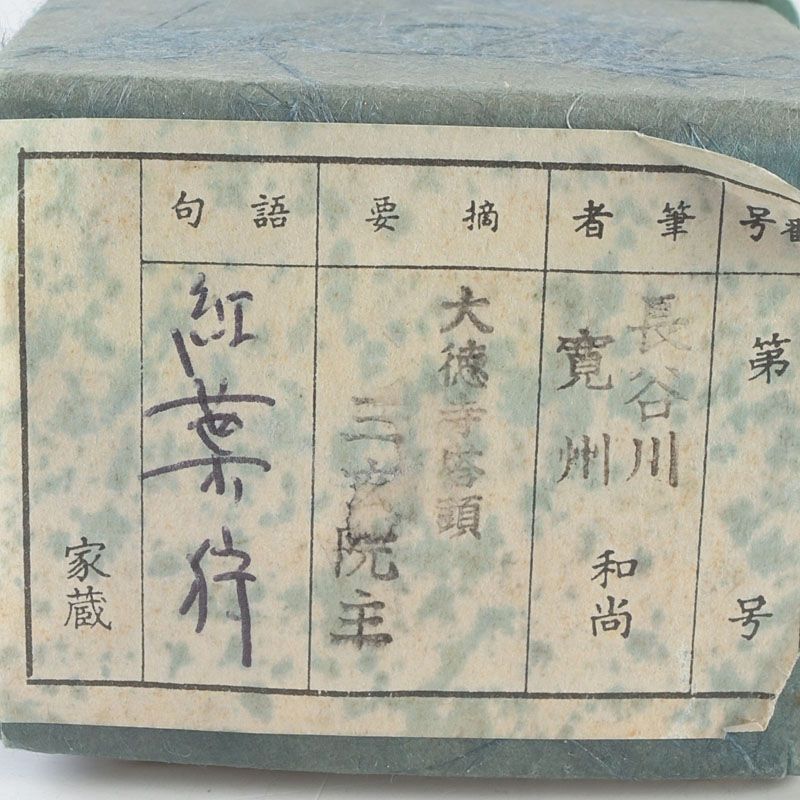 番号
第 号
筆者
長谷川
寛州
和尚
摘要
大徳寺塔頭
三玄院主
語句
紅葉狩
家蔵